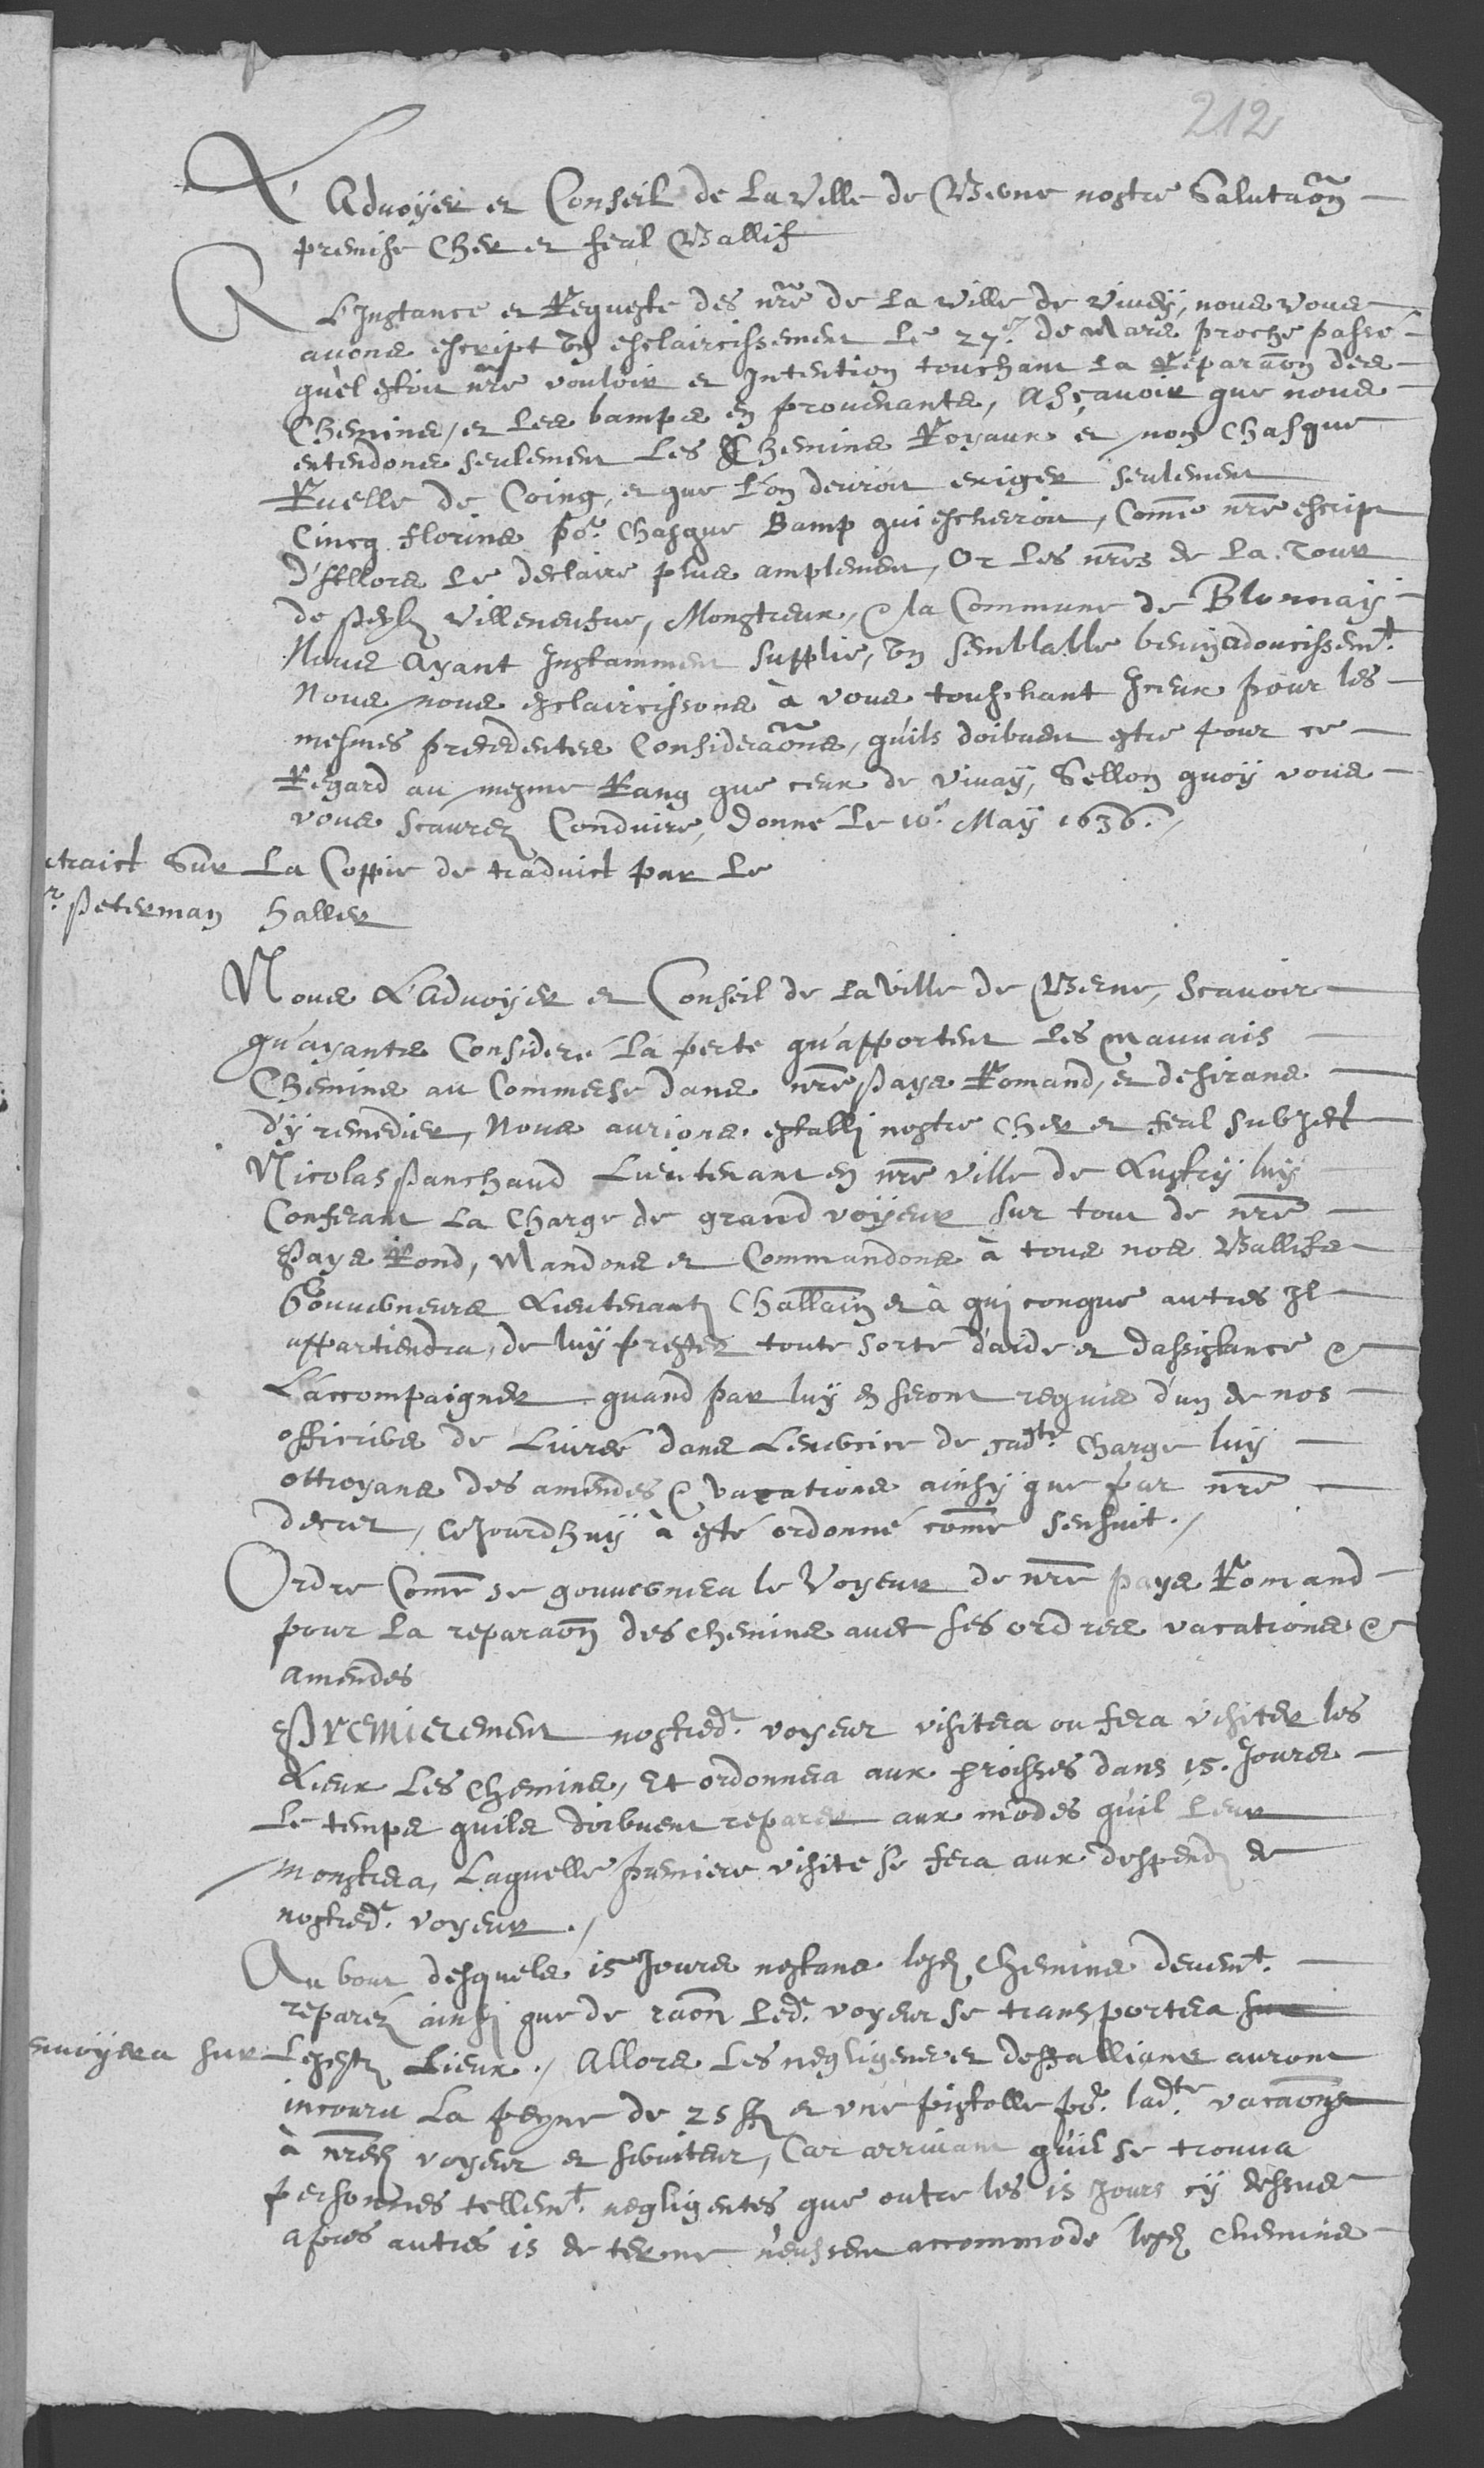 212
L'Advoyer et Conseil de La Ville de Berne nostre Salutaõn
premise Cher et feal Ballif
A L'Instance et Requeste des nr̃e de La Ville de Vivey, nous vous
avons escript un esclaircissement Le 27.e de Mars proche passé
quel estoit nr̃e vouloir et Intention touchant La Reparaõn des
Chemins, et Les bamps en provenants, Asçavoir que nous
entendons seulement Les Chemins Royaux et non Chasque
Ruelle de Coing, et que L'on devroit exiger seulement
Cincq florins po.r Chasque Bamp qui escherroit, Com̃e nr̃e escript
d'Allors Le declaire plus amplement, Or Les nr̃es de La Tour
de Peylz Villeneufve, Monstreux, & la Commune de Blonnay
Nous Ayant Instamment supplie, un semblable benin adoucissem.t
Nous nous esclaircissons à vous touschant Iceux pour les
mesmes precedentes Consideraõns, quils doibvent estre pour ce
Regard au mesme Rang que ceux de Vivay, Sellon quoÿ vous
vous scaurez Conduire, Donné Le 10.e Maÿ 1636.
traict Sur La Coppie de traduict par Le
r. Peterman Haller
Nous L'Advoÿer et Conseil de La Ville de Berne, Scavoir
qu'ayants Consideré La perte qu'apportent Les mauvais
Chemins au Commerse dans nr̃e Pays Romand, et desirans
d'ÿ remedier, Nous aurions establi nostre Cher et feal Subject
Nicolas Panchaud Lieutenant en nr̃e Ville de Lustry luÿ
Conferant La Charge de grand voÿeur sur tout de nr̃e
Pays Rond, Mandons et Commandons à tous nos Ballifs
Gouverneurs Lieutenants Challain et à quiconque autres Il
appartiendra, de luÿ prester toute sorte d'aide et d'assistance &
L'accompaigner quand par luÿ en seront requis d'un de nos
officiers de Livrée dans L'exercice de sad.te Charge luÿ
ottroyans des amendes & vacations ainsÿ que par nr̃e
decret, Cejourdhuÿ à esté ordonné com̃e s'ensuit.
Ordre Com̃e se gouvernera le Voyeur de nr̃e pays Romand
pour La reparaõn des chemins avec ses ordres vacations &
amendes
Premierement nostred.t voyeur visitera ou fera visiter les
Lieux Les Chemins, Et ordonnera aux proisses dans 15. Jours
Le temps quils doibvent reparer aux modes qu'il Leur
monstrera, Laquelle premiere visite se fera aux despends de
nostred.t voyeur.
Au bout desquels 15 Jours nestans lesd. Chemins devem.t
reparéz ainsi que de raõn Led.t voyeur se transportera
envoyera sur Lesd. Lieux. Allors Les negligents et deffallians auront
incouru La peyne de 25 ff. et une pistolle po.r lad.te vacaõns
à nr̃ed. voyeur et serviteur, Car arrivant qu'il se trouva
personnes tellem.t negligentes que outre les 15 Jours cÿ dessus
apres autres 15 de terme n'eussent accommodé lesd. chemins